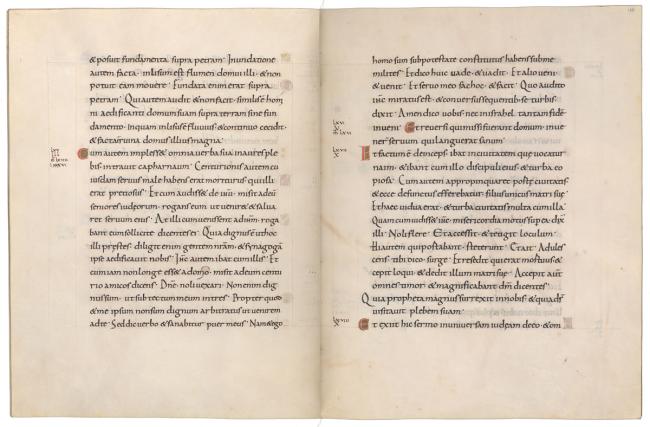 & posuit fundamenta supra petram· Inundatione
autem facta· inlisum est flumen domui illi· & non
potuit eam mouere· Fundata enim erat supra
petram· Qui autem audit & non facit· similis ē hom
ni aedificanti domum suam supra terram sine fun
damento· in quam inlisus ē fluuius· & continuo cecidit·
& facta ē ruina domus illius magna·
Cum autem impless& omnia uerba sua in aures ple
bis· intrauit capharnaum· Centurionis autem cu
iusdam seruus male habens erat moriturus qui illi
erat pretiosus· Et cum audiss& de ihū· misit ad eū
seniores iudeorum· rogans eum ut ueniret & salua
ret seruum eius· At illi cum uenissent ad ihm̄· roga
bant eum sollicite dicentes ei· Quia dignus ē ut hoc
illi prestes· diligit enim gentem nrām· & synagogā
ipse aedificauit nobis· Ihc̄ autem ibat cum illis· Et
cum iam non longe ess& a domo· misit ad eum centu
rio amicos dicens· Dnē· noli uexari· Non enim dig
nus sum· ut sub tectum meum intres· Propter quod
& me ipsum non sum dignum arbitratus ut uenirem
ad te· Sed dic uerbo & sanabitur puer meus· Nam & ego
homo sum sub potestate constitutus habens sub me
milites· Et dico huic uade· & uadit· Et alio ueni·
& uenit· Et seruo meo fac hoc· & facit· Quo audito
ihc̄ miratus est· & conuersus sequentib· se turbis·
dixit· Amen dico uobis· nec in israhel tantam fidē
inueni·
Et reuersi qui missi fuerant domum· inue
nerunt seruum qui languerat sanum·
Et factum ē deinceps ibat in ciuitatem quae uocatur
naim· & ibant cum illo discipuli eius· & turba co
piosa· Cum autem appropinquaret portę ciuitatis·
& ecce defunctus efferebatur· filius unicus matri suę·
Et haec uidua erat· & turba ciuitatis multa cum illa·
Quam cum uidiss& dns̄· misericordia motus sup ea· dix̄
illi· Noli flere· Et accessit· & tetigit loculum·
Hi autem qui portabant· steterunt· Et ait· Adules
cens· tibi dico· surge· Et resedit qui erat mortuus· &
coepit loqui· & dedit illum matri suę· Accepit aut̄
omnes timor· & magnificabant dm̄· dicentes·
Quia propheta magnus surrexit in nobis· & quia d̄s
uisitauit plebem suam·
Et exiit hic sermo in uniuersam iudęam de eo· & om